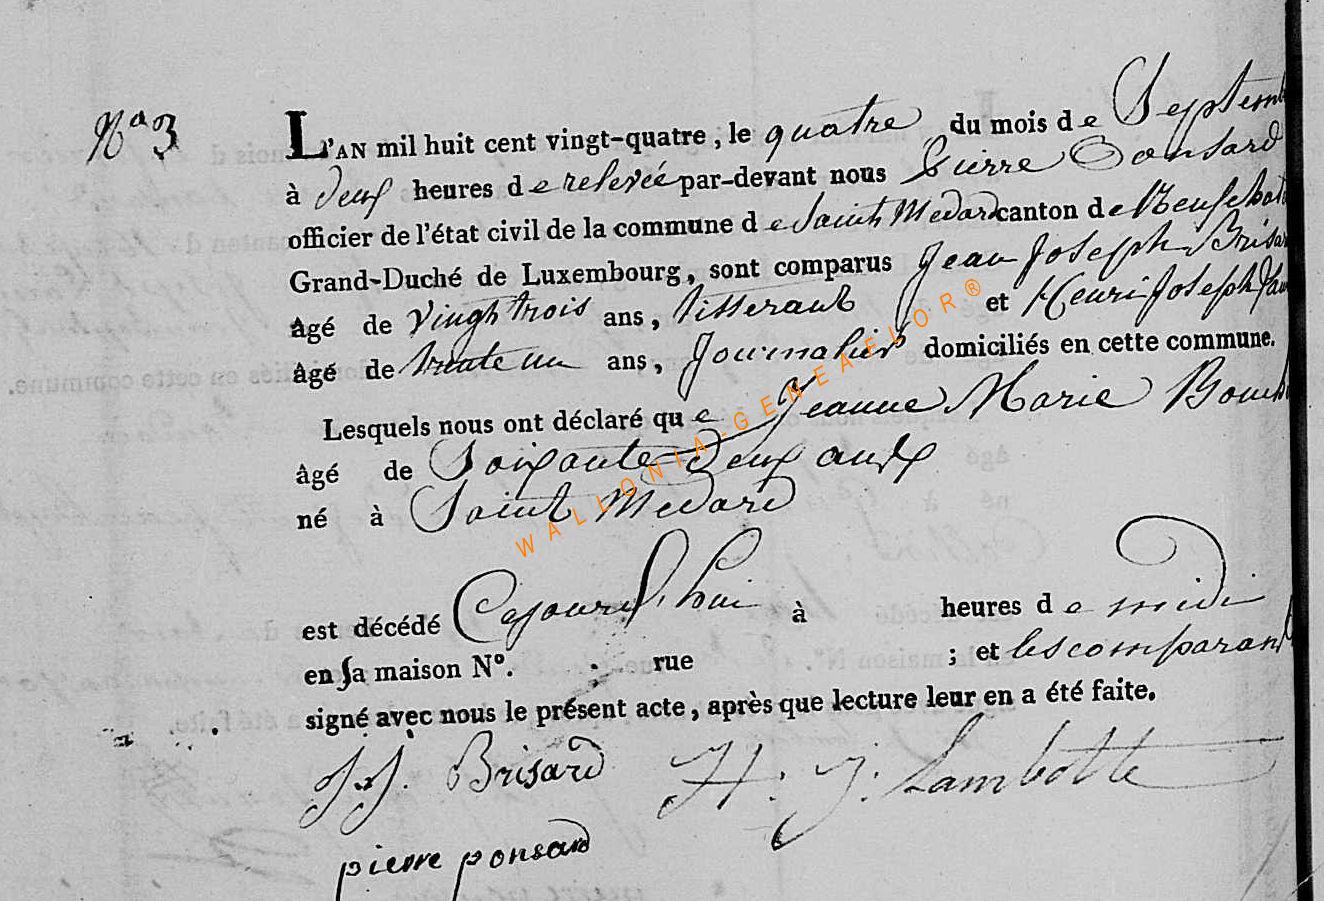 Nº 3
L'AN mil huit cent vingt-quatre, le quatre du mois de Septem
à deux heures de relevée par-devant nous Pierre Ponsard
officier de l'état civil de la commune de Saint Medard canton de Neufchat
Grand-Duché de Luxembourg, sont comparus Jean Joseph Brisar
âgé de vingt trois ans, tisserant et Henri Joseph Lam
âgé de trente un ans, Journalier domiciliés en cette commune.
Lesquels nous ont déclaré que Jeanne Marie
âgé de Soixante deux ans
né à Saint Medard
est décédé Cejourd'hui à heures de midi
en sa maison Nº. rue ; et les comparant
signé avec nous le présent acte, après que lecture leur en a été faite.
J. J. Brisard H. J. Lambotte
pierre ponsard
WALLONIA-GENEAFLOR®